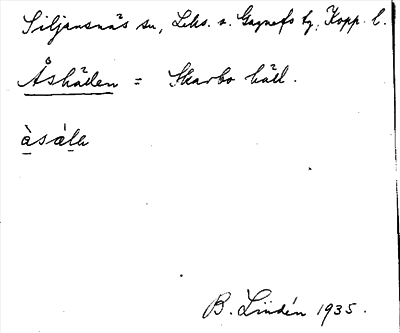 Siljansnäs sn, Leks. o. Gagnefs tg, Kopp. l.
Åshäden = Skarbo häll.
B. Lindén 1935.